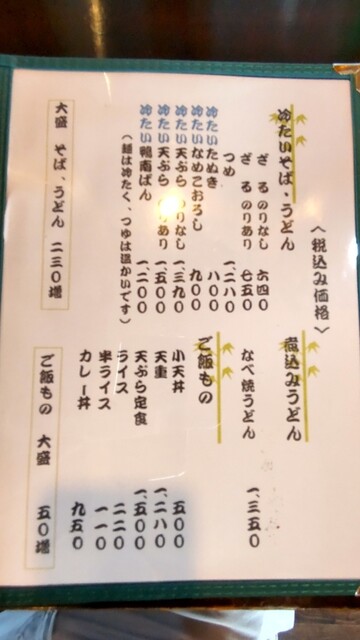 〈税込み価格〉
冷たいそば・うどん
ざるのりなし 六四〇
ざるのりあり 七五〇
つめ 一、二八〇
冷たいたぬき 八〇〇
冷たいなめこおろし 九〇〇
冷たい天ぷら のりなし 一、三九〇
冷たい天ぷら のりあり 一、五〇〇
冷たい鴨南ばん 一、二〇〇
(麺は冷たく、つゆは温かいです)
大盛 そば、うどん 二三〇増
煮込みうどん
なべ焼うどん 一、三五〇
ご飯もの
小天丼 五〇〇
天重 一、二八〇
天ぷら定食 一、五〇〇
ライス 二二〇
半ライス 一一〇
カレー丼 九五〇
ご飯もの 大盛 五〇増